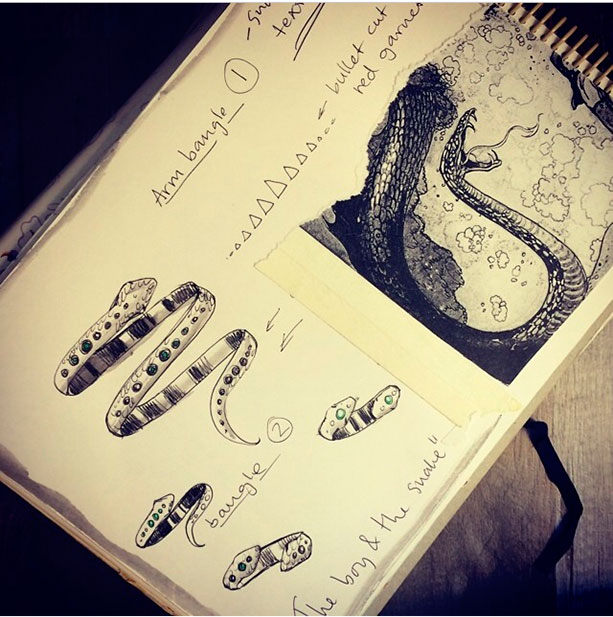 Arm bangle 1
bullet cut
red garnet
2
bangle
The boy & the snake"